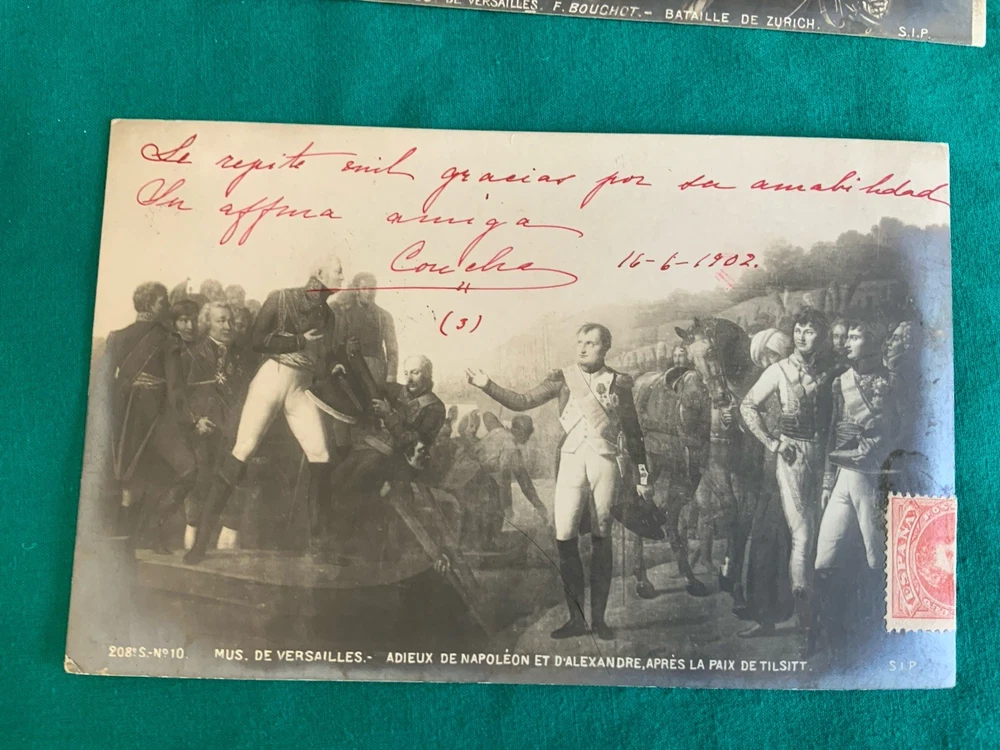 DE VERSAILLES. F. BOUCHOT.- BATAILLE DE ZURICH.
S.I.P.
Se repite mil gracias por su amabilidad
Su affma amiga
Concha
16-6-1902.
(3)
ESPAÑA
208e S.-No 10. MUS. DE VERSAILLES.- ADIEUX DE NAPOLÉON ET D'ALEXANDRE, APRÈS LA PAIX DE TILSITT. S.I.P.